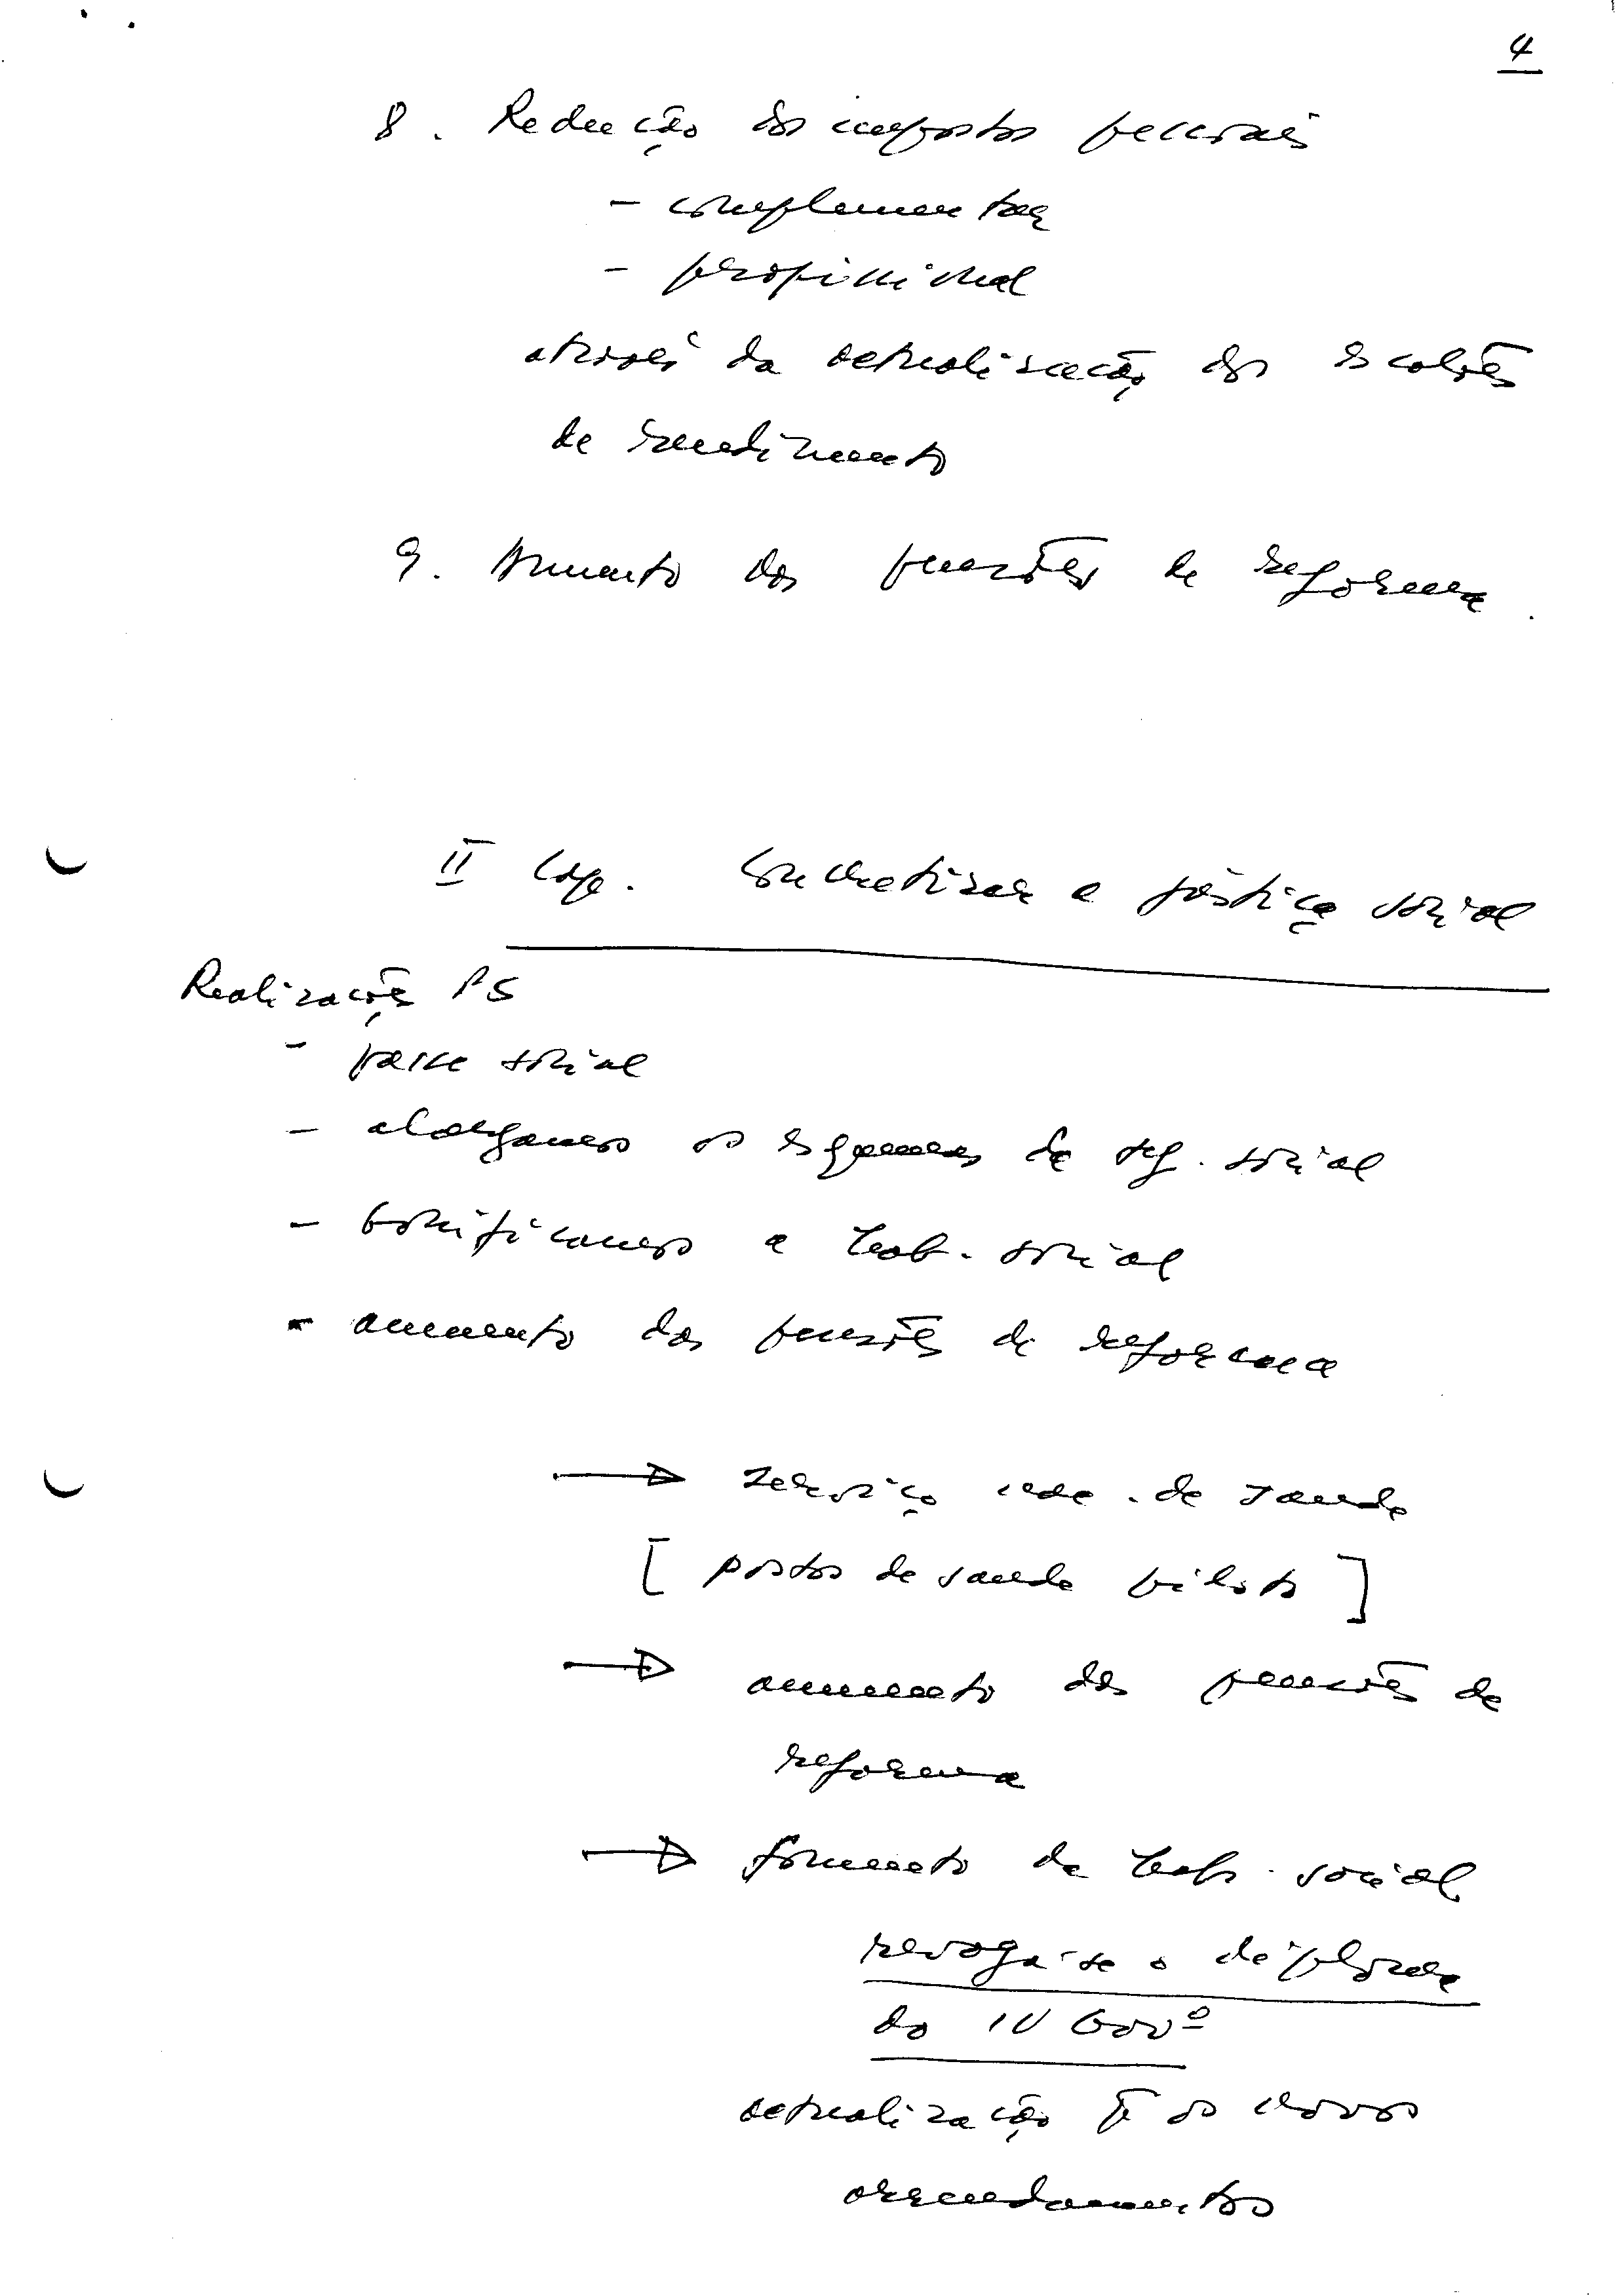 4
8. Redução dos impostos pessoais
- complementar
- profissional
através da actualização dos escalões
de rendimento
9. Aumento das pensões de reforma.
II Cap. Concretizar a justiça social
Realizações PS
- passe social
- alargamos os esquemas de seg. social
- bonificamos a hab. social
- aumento das pensões de reforma
→ Serviço nac. de Saude
[ postos de saude piloto ]
→ aumento das pensões de
reforma
→ fomento da hab. social
revoga-se o diploma
do IV Govº
actualização os novos
arrendamentos